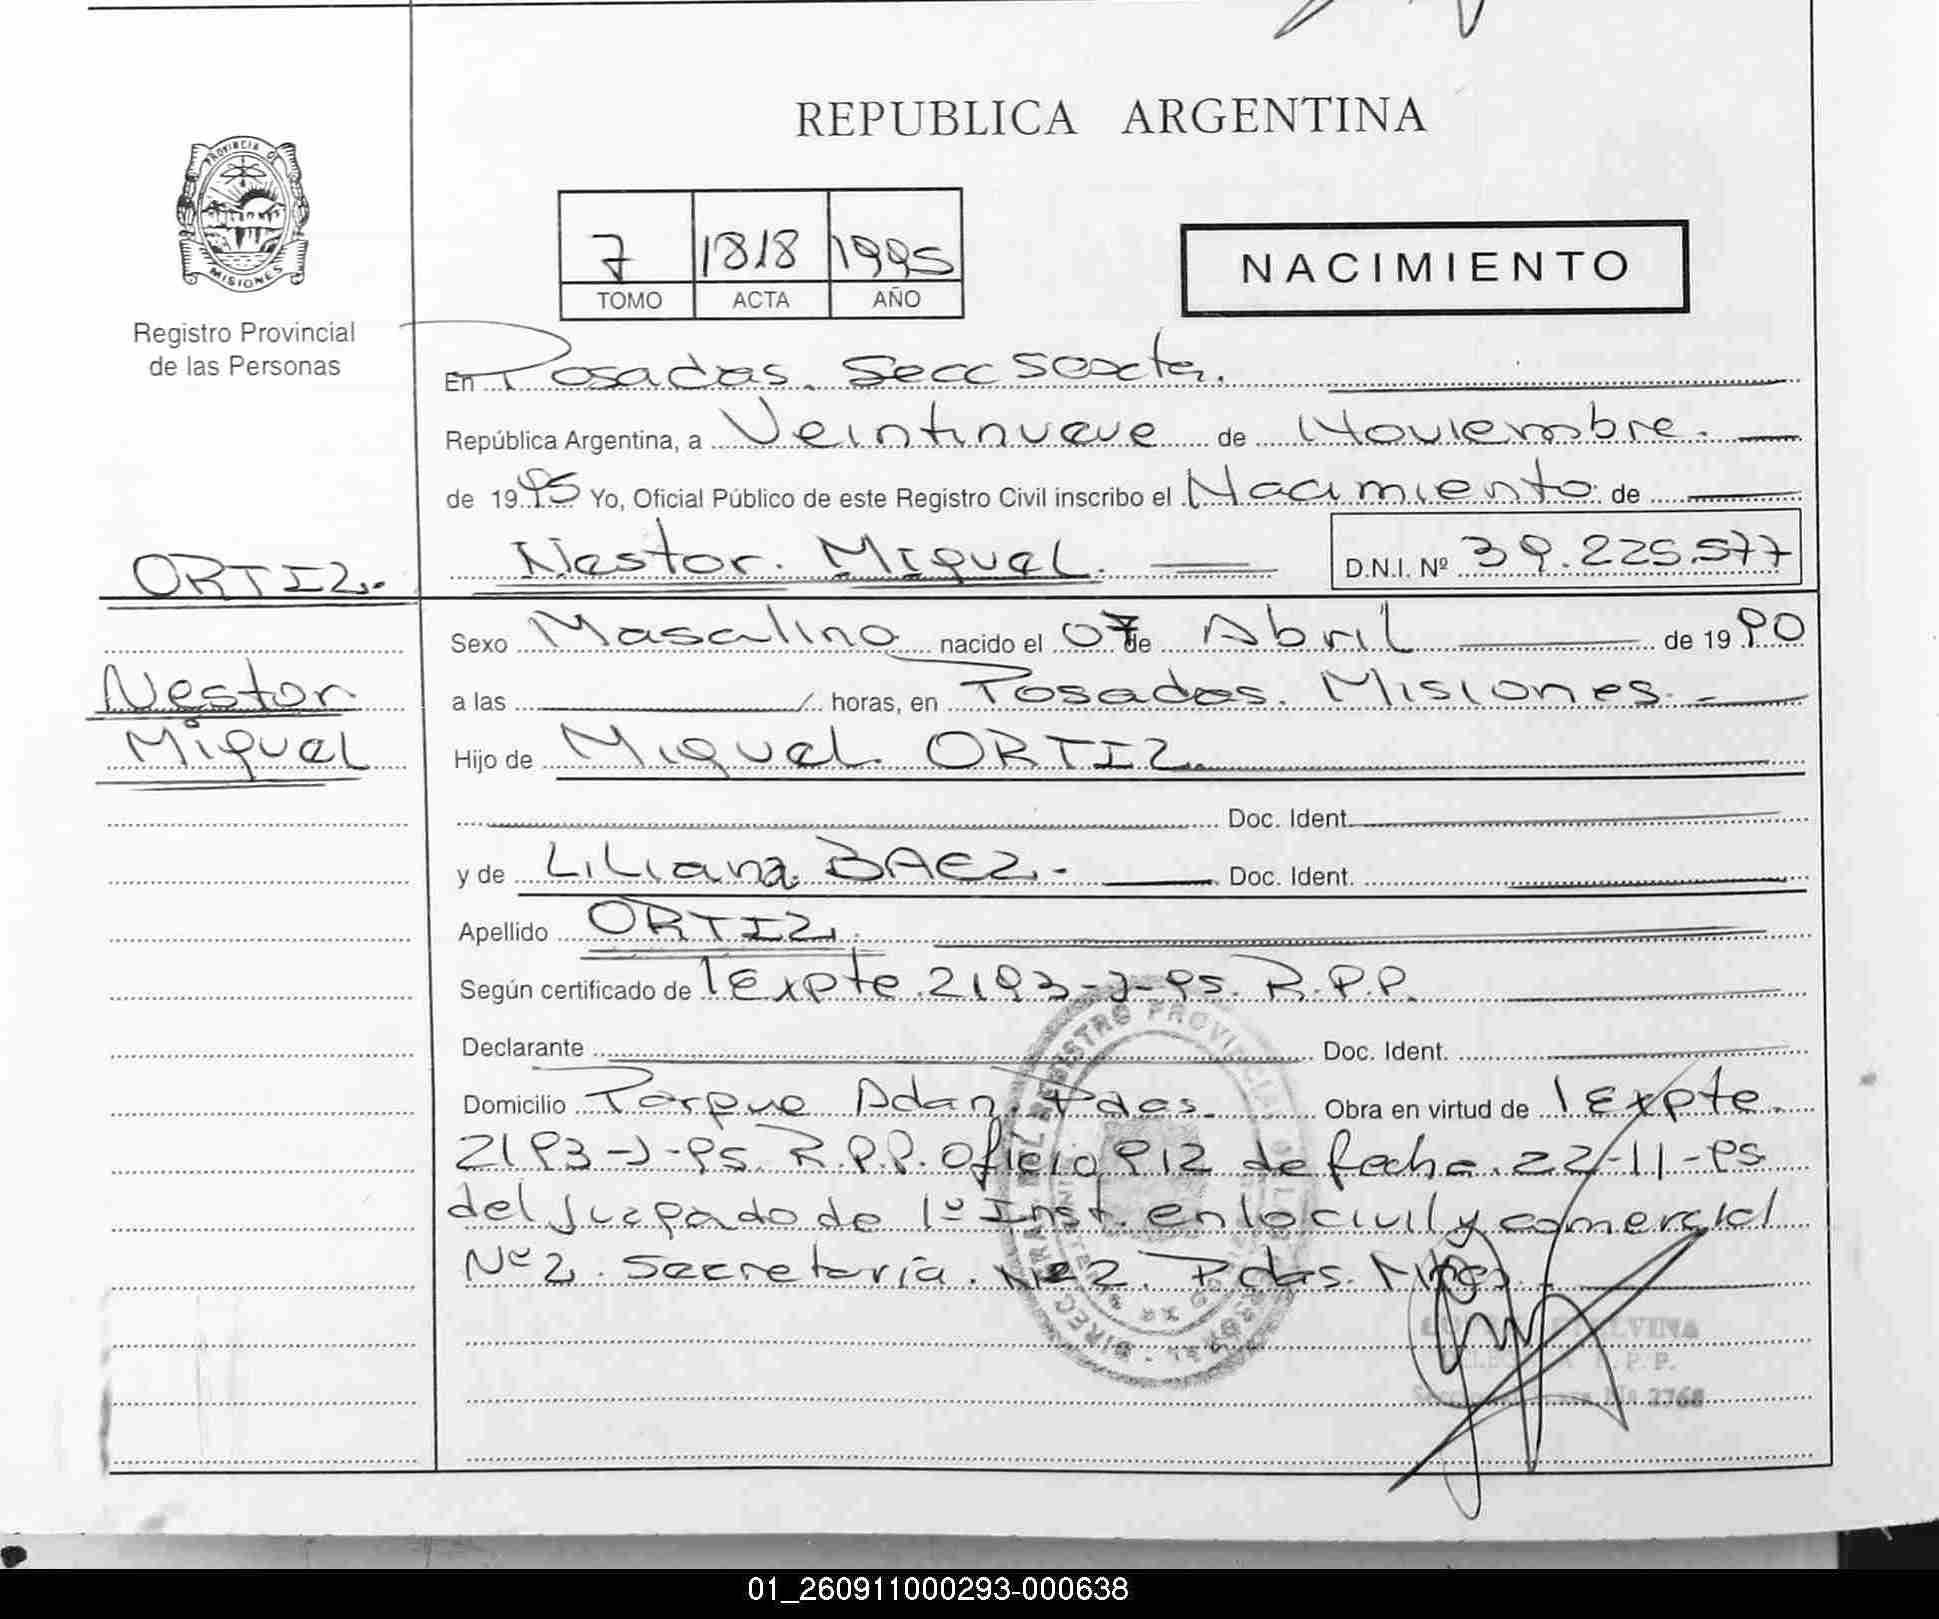 REPUBLICA ARGENTINA
PROVINCIA DE
MISIONES
Registro Provincial
de las Personas
7 1818 1995
TOMO ACTA AÑO
NACIMIENTO
En Posadas. Secc Sexta.
República Argentina, a Veintinueve de Noviembre.
de 1995 Yo, Oficial Público de este Registro Civil inscribo el Nacimiento de
ORTIZ.
Nestor. Miguel. D.N.I. Nº 39.225.577
Sexo Masculino nacido el 07 de Abril de 1990
Nestor
a las horas, en Posadas. Misiones.
Miguel
Hijo de Miguel ORTIZ.
Doc. Ident.
y de Liliana BAEZ.- Doc. Ident.
Apellido ORTIZ.
Según certificado de 1 Expte. 2193-J-95. R.P.P.
Declarante Doc. Ident.
Domicilio Parque Adan. Pdas. Obra en virtud de 1 Expte.
2193-J-95. R.P.P. Oficio 912 de fecha. 22-11-95
del Juzgado de 1º Inst. en lo civil y comercial
Nº 2. Secretaría. Nº 2. Pdas. Mnes.
REGISTRO PROVINCIAL DE LAS
ELVINA
R.P.P.
Nº 2768
01_260911000293-000638